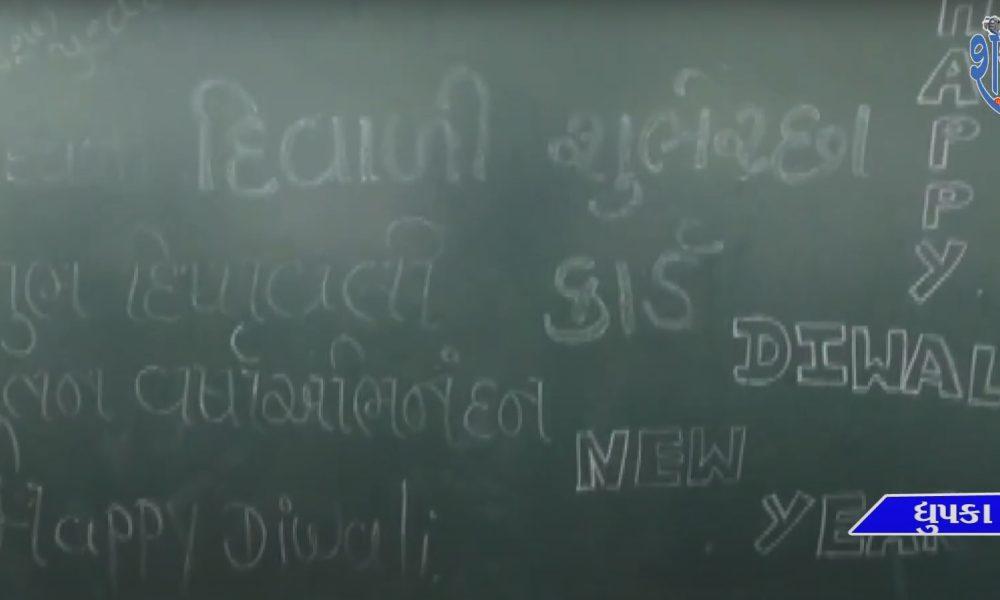 દિવાળી શુભેચ્છા
કાર્ડ
દિપાવલી
વર્ષાઅભિનંદન
Happy Diwali
HAPPY
DIWAL
NEW
YEAR
ધુપકા